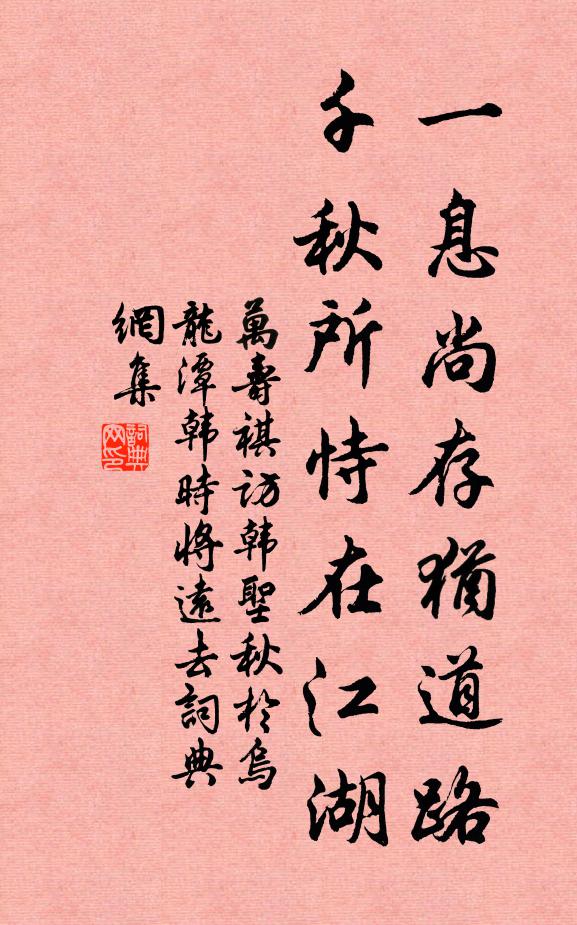 一息尚存猶道路
千秋所恃在江湖
萬壽祺訪韓聖秋於烏
龍潭韓時將遠去詞典
網集
詞典
网印